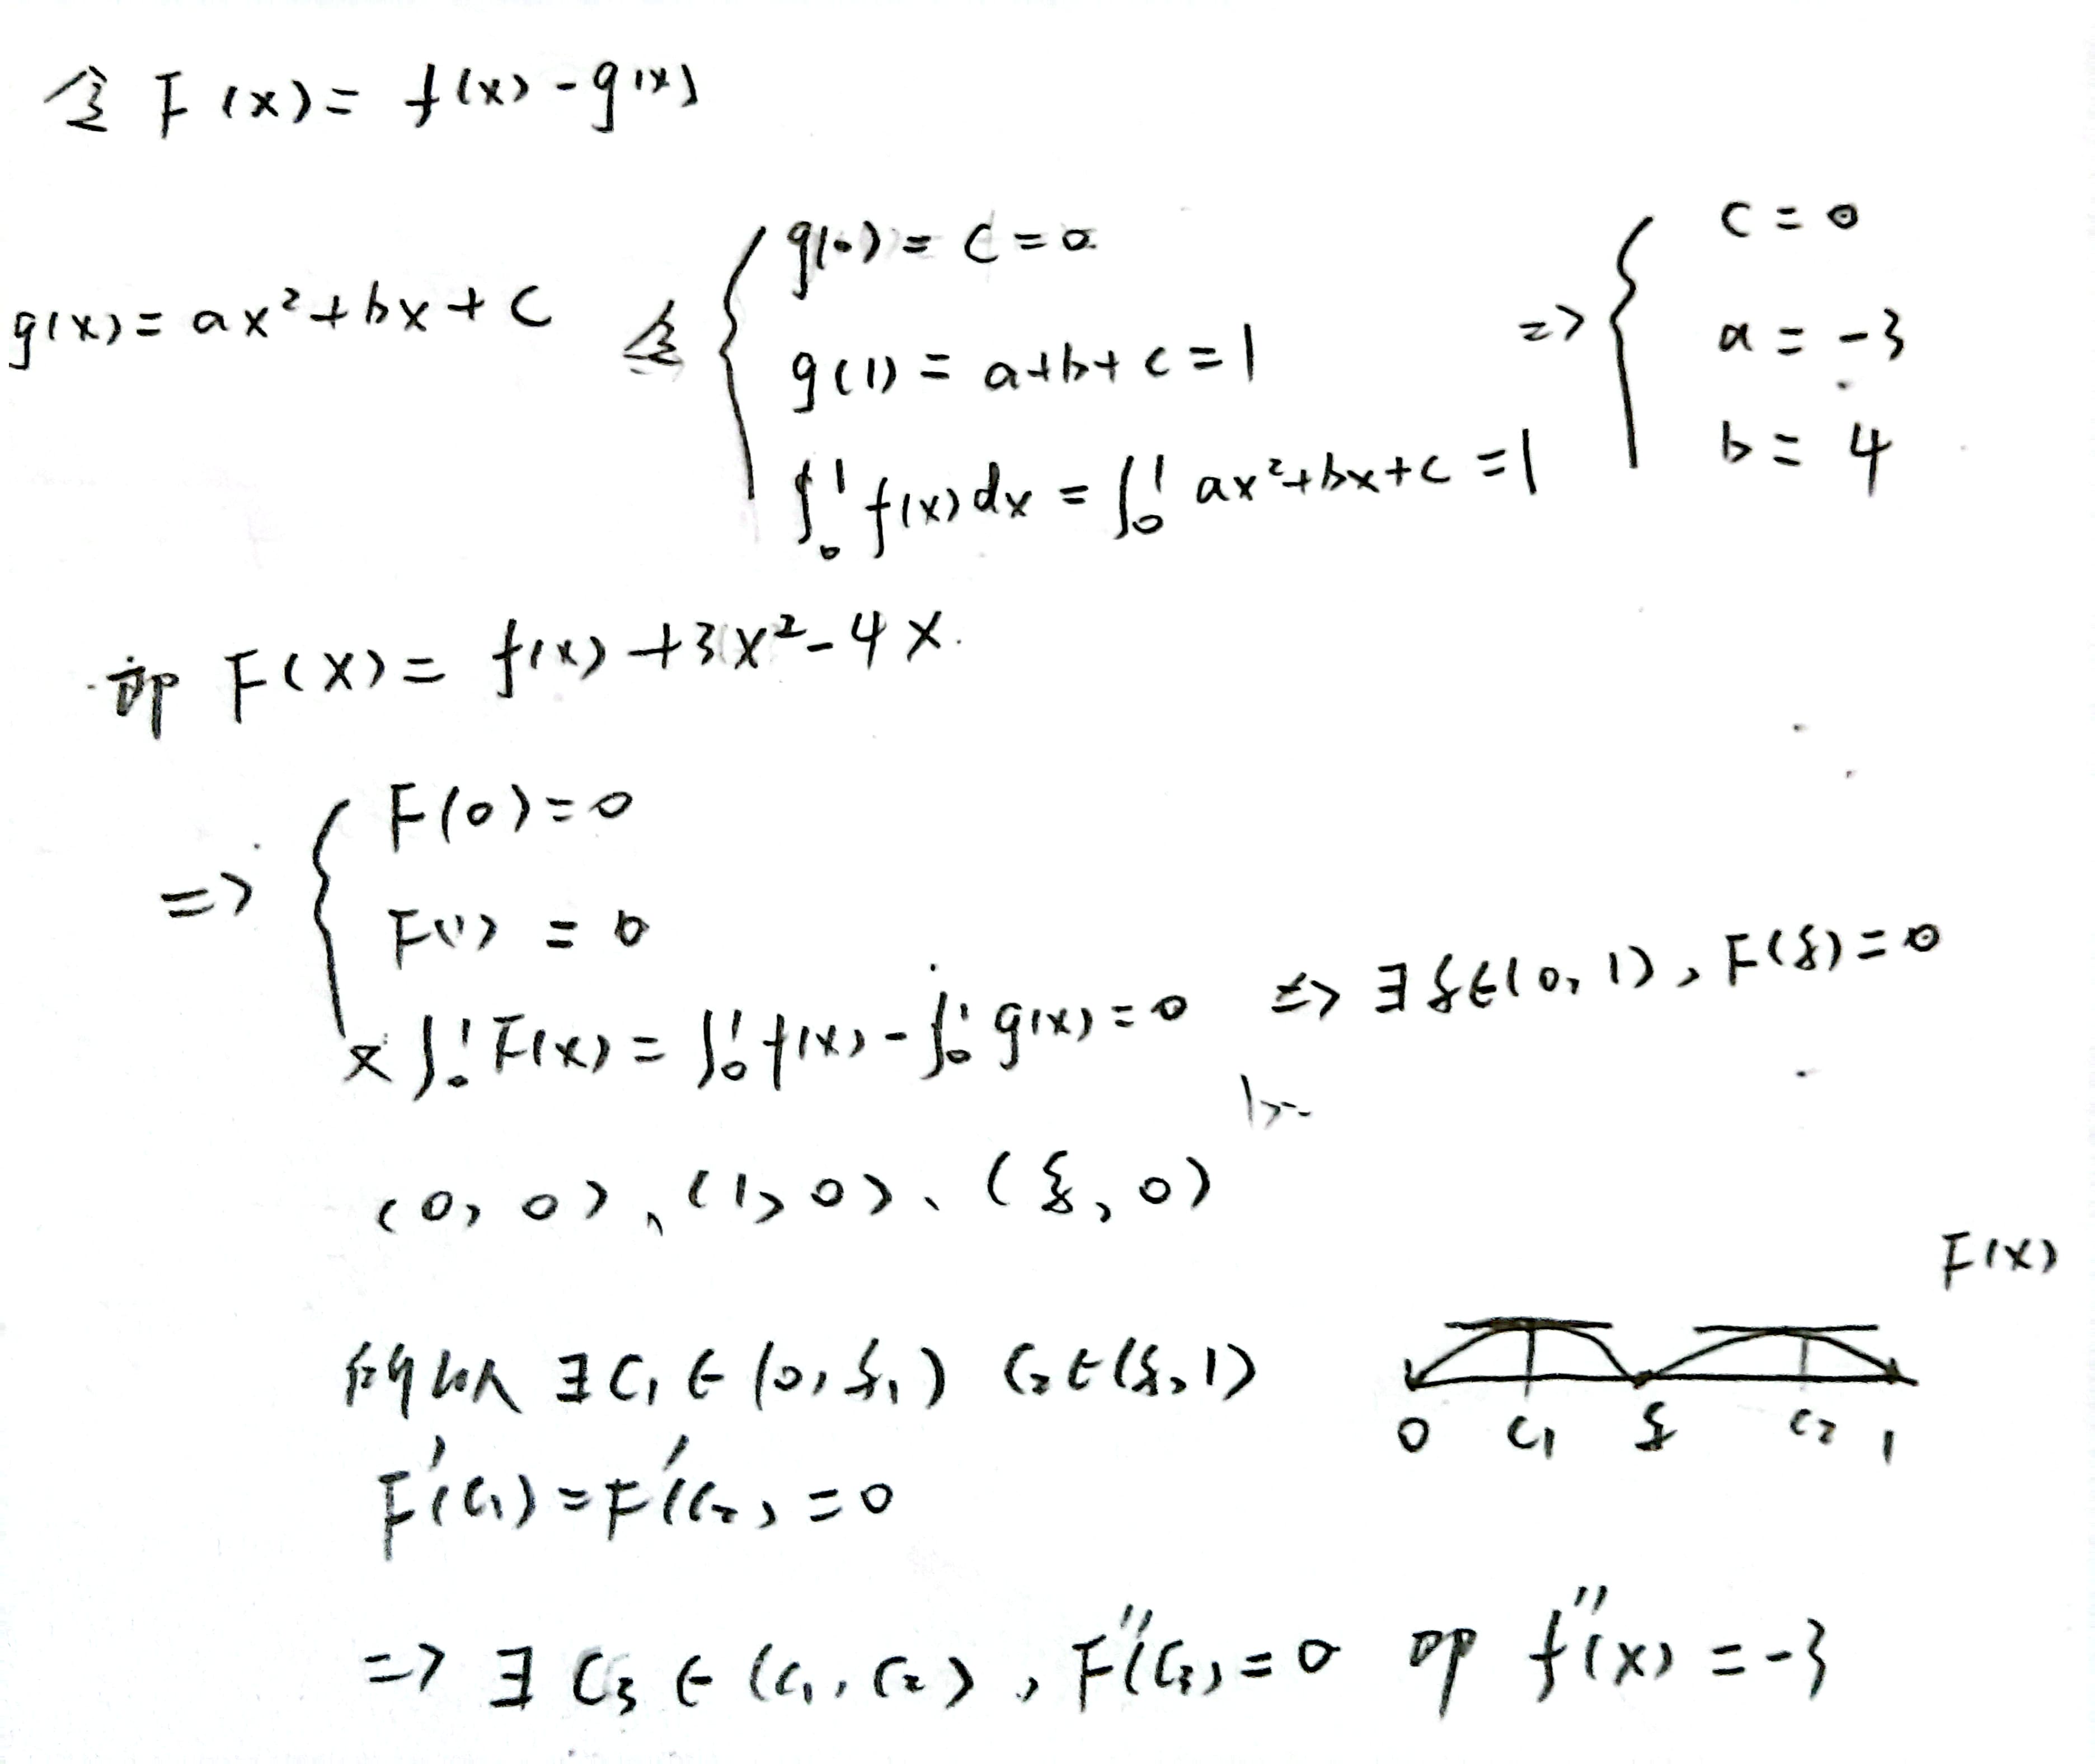 令 F(x) = f(x) - g(x)
g(x) = ax²+bx+c 令 { g(0) = c = 0
g(1) = a+b+c = 1
∫₀¹ f(x)dx = ∫₀¹ ax²+bx+c = 1
=> { c = 0
a = -3
b = 4
即 F(x) = f(x) +3x²-4x.
=> { F(0) = 0
F(1) = 0
又 ∫₀¹ F(x) = ∫₀¹ f(x) - ∫₀¹ g(x) = 0 => ∃ξ∈(0,1), F(ξ)=0
(0,0)、(1,0)、(ξ,0)
F(x)
∃C₁∈(0,ξ₁) C₂∈(ξ,1)
0 C₁ ξ C₂ 1
F'(C₁) = F'(C₂) = 0
=> ∃ C₃ ∈ (C₁,C₂), F''(C₃) = 0 即 f''(x) = -3